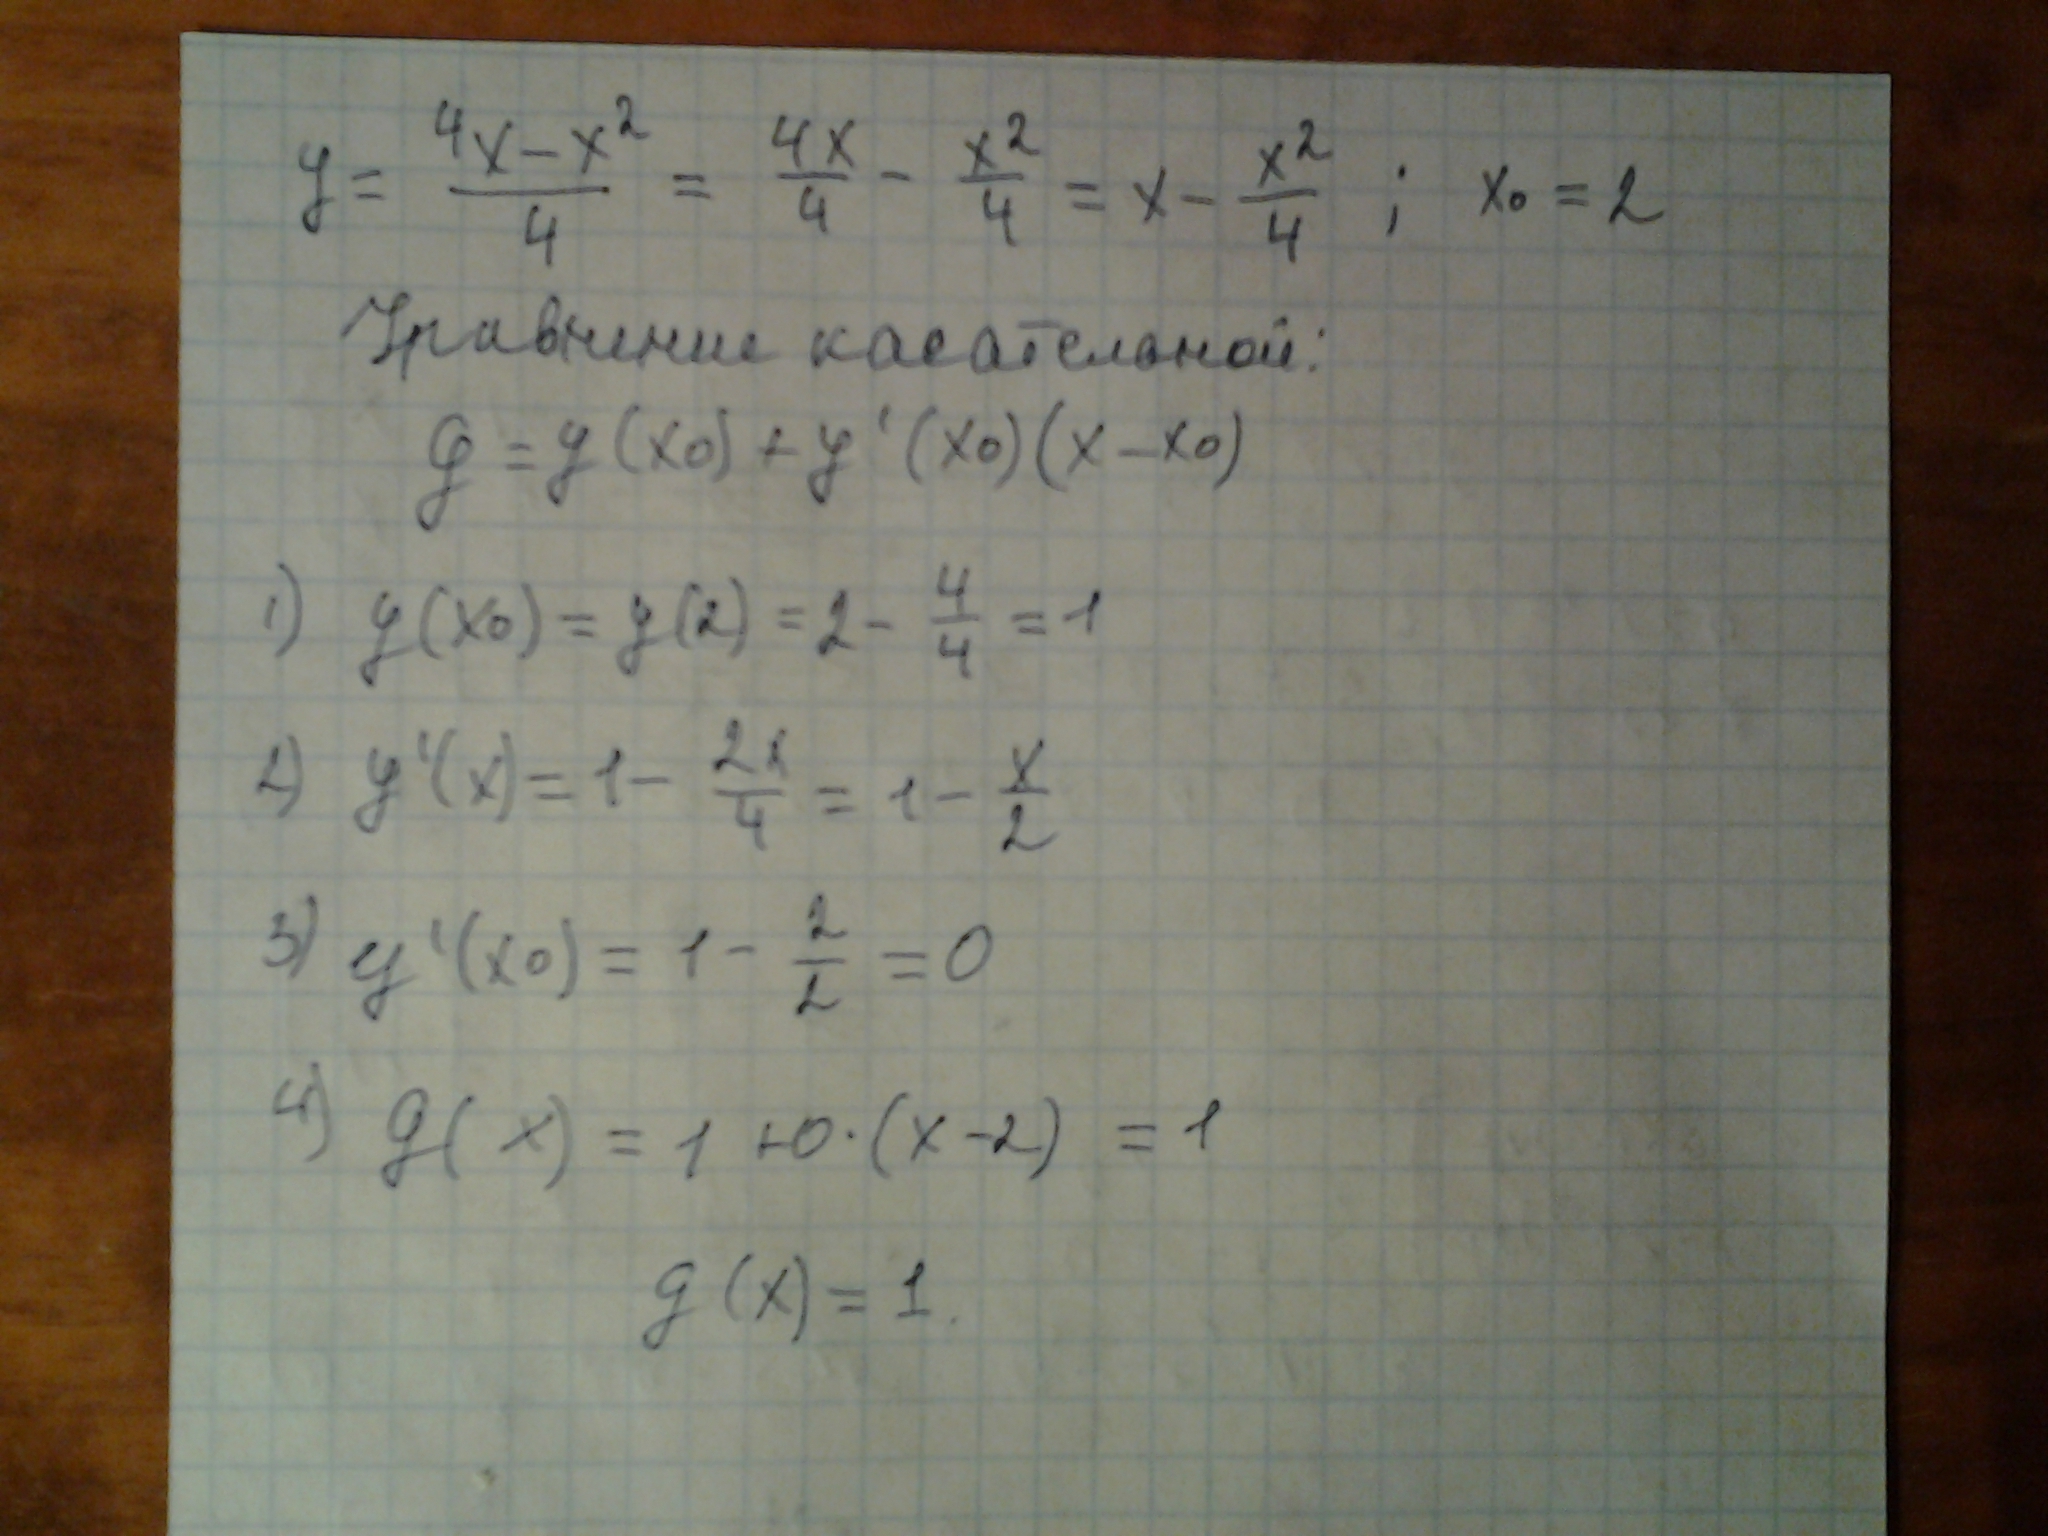 y = (4x - x²)/4 = 4x/4 - x²/4 = x - x²/4 ; x₀ = 2
Уравнение касательной:
g = y(x₀) + y'(x₀)(x - x₀)
1) y(x₀) = y(2) = 2 - 4/4 = 1
2) y'(x) = 1 - 2x/4 = 1 - x/2
3) y'(x₀) = 1 - 2/2 = 0
4) g(x) = 1 + 0·(x - 2) = 1
g(x) = 1.